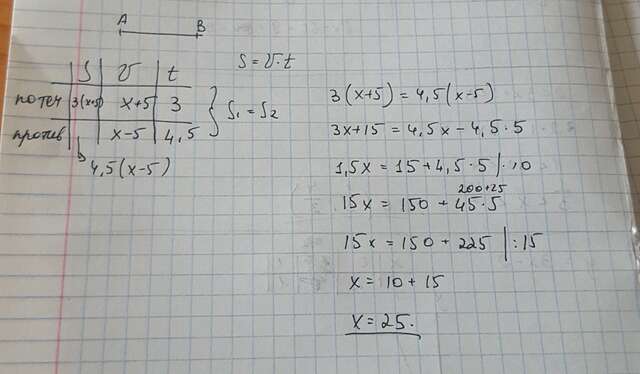 A B
S = v·t
S v t
по теч 3(x+5) x+5 3
против x-5 4,5
S₁ = S₂
4,5(x-5)
3(x+5) = 4,5(x-5)
3x+15 = 4,5x - 4,5·5
1,5x = 15 + 4,5·5 | ·10
200+25
15x = 150 + 45·5
15x = 150 + 225 | :15
x = 10 + 15
x = 25.